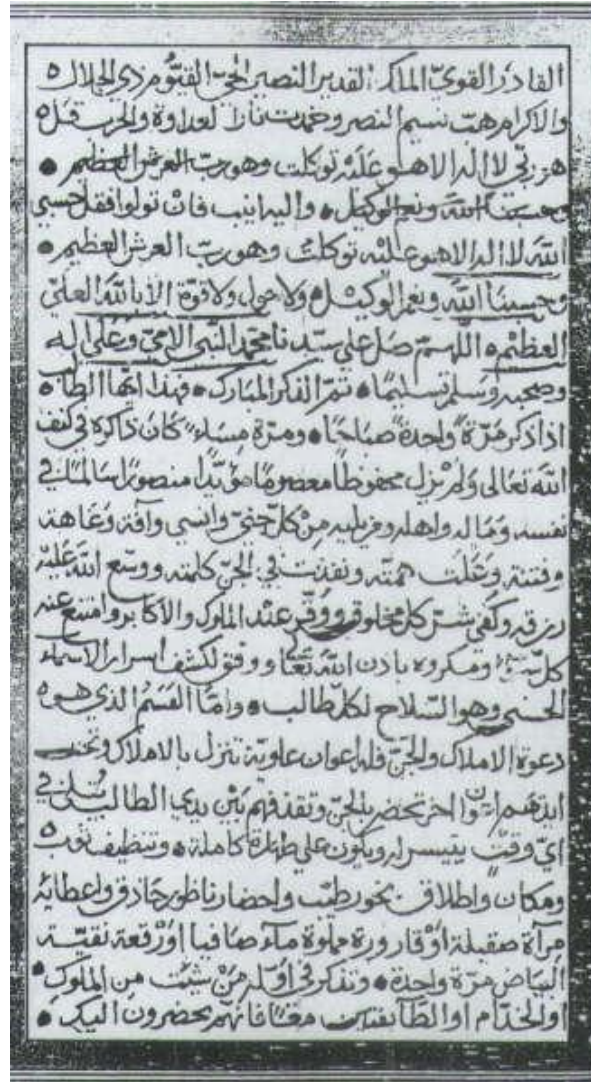 القادر القوي المالك القدير النصير الحي القيوم ذي الجلال ه
والاكرام هبت نسيم النصر وخمدت نار العداوة والحرب قل ه
هو ربي لا اله الا هو عليه توكلت وهو رب العرش العظيم •
وحسبنا الله ونعم الوكيل • واليه انيب فان تولوا فقل حسبي
الله لا اله الا هو عليه توكلت وهو رب العرش العظيم •
وحسبنا الله ونعم الوكيل ولا حول ولا قوة الا بالله العلي
العظيم • اللهم صل علي سيدنا محمد النبي الامي وعلى اله
وصحبه وسلم تسليما • تم الذكر المبارك • فهذا ايها الطالب
اذا ذكر مرة واحدة صباحا • ومرة مساء كان ذاكره في كنف
الله تعالى ولم يزل محفوظا معصوما مؤيدا منصورا سالما في
نفسه وماله واهله ومن يليه من كل جني وانسي وآفة وعاهة
وفتنة وعلت همته ونفذت في الجن كلمته ووسع الله عليه
رزقه وكفي شر كل مخلوق ووقر عند الملوك والاكابر وامتنع عنه
كل سوء ومكروه باذن الله تعا ووفق لكشف اسرار الاسماء
الحسنى وهو السلاح لكل طالب • واما القسم الذي هو ه
دعوة الاملاك والجن فله اعوان علوية تنزل بالاملاك وتحت
ايديهم اعوان اخر تحضر بالجن وتقذفهم بين يدي الطالب يتلى في
اي وقت يتيسر له ويكون علي طهارة كاملة • وتنظيف ثوب
ومكان واطلاق بخور طيب واحضار ناظور حاذق واعطائه
مرآة صقيلة او قارورة مملوة ماء صافيا او رقعة نقية
البياض مرة واحدة • وتذكر في اوله من شئت من الملوك •
او الخدام او الطائفتين معا فانهم يحضرون اليك •